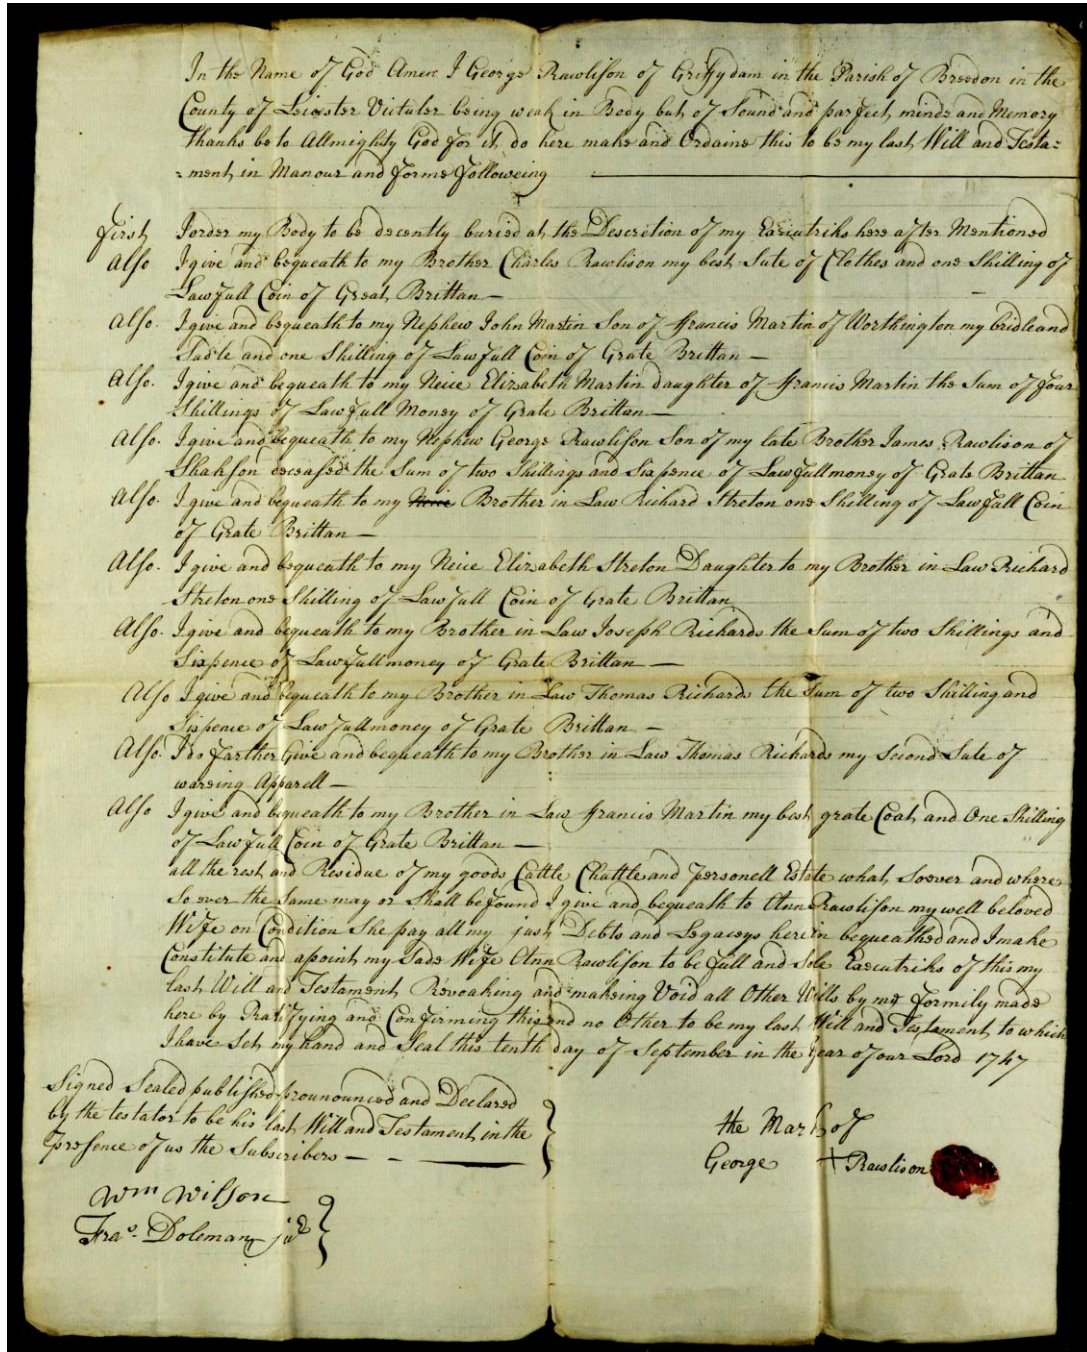 In the Name of God Amen I George Rawlison of Griffydam in the Parish of Breedon in the
County of Leicster Victuler being weak in Body but of Sound and parfect minde and Memory
thanks be to Allmighty God for it do here make and Ordaine this to be my last Will and Testa=
=ment in Manour and forme followeing
First I order my Body to be decently buried at the Descretion of my Executriks here after Mentioned
Also I give and bequeath to my Brother Charles Rawlison my best Sute of Clothes and one Shilling of
Lawfull Coin of Great Brittan—
Also. I give and bequeath to my Nephew John Martin Son of Francis Martin of Worthington my bridle and
Sadle and one Shilling of Lawfull Coin of Grate Brittan—
Also. I give and bequeath to my Neice Elizabeth Martin daughter of Francis Martin the Sum of four
Shillings of Lawfull Money of Grate Brittan—
Also. I give and bequeath to my Nephew George Rawlison Son of my late Brother James Rawlison of
Shakson deceased the Sum of two Shillings and Sixpence of Lawfull money of Grate Brittan
Also. I give and bequeath to my Neice Brother in Law Richard Streton one Shilling of Lawfull Coin
of Grate Brittan—
Also. I give and bequeath to my Neice Elizabeth Streton Daughter to my Brother in Law Richard
Streton one Shilling of Lawfull Coin of Grate Brittan
Also. I give and bequeath to my Brother in Law Joseph Richards the Sum of two Shillings and
Sixpence of Lawfull money of Grate Brittan—
Also I give and bequeath to my Brother in Law Thomas Richards the Sum of two Shilling and
Sixpence of Lawfull money of Grate Brittan—
Also. I do farther Give and bequeath to my Brother in Law Thomas Richards my Second Sute of
wareing Apparell—
Also I give and bequeath to my Brother in Law Francis Martin my best grate Coat and One Shilling
of Lawfull Coin of Grate Brittan—
all the rest and Residue of my goods Cattle Chattle and personell Estate what soever and where
So ever the Same may or Shall be found I give and bequeath to Ann Rawlison my well beloved
Wife on Condition She pay all my just Debts and Legaceys herein bequeathed and I make
Constitute and apoint my Sade Wife Ann Rawlison to be full and Sole Executriks of this my
last Will and Testament Revoaking and makeing Void all Other Wills by me formily made
here by Ratifying and Confirming this and no Other to be my last Will and Testament to which
I have Set my hand and Seal this tenth day of September in the Year of our Lord 1747
Signed Sealed published pronounced and Declared
by the testator to be his last Will and Testament in the
presence of us the Subscribers—
the Mark of
George + Rawlison
Wm Wilson
Fras. Doleman jur